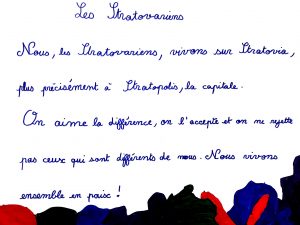 Les Stratovariens
Nous, les Stratovariens, vivons sur Stratovia,
plus précisément à Stratopolis, la capitale.
On aime la différence, on l'accepte et on ne rejette
pas ceux qui sont différents de nous. Nous vivons
ensemble en paix !